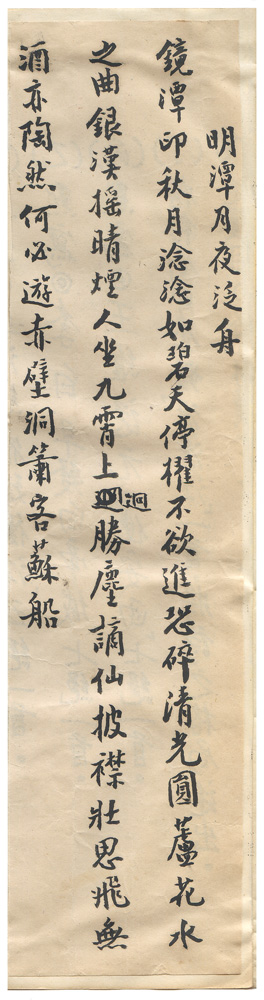 明潭月夜泛舟
鏡潭印秋月淰淰如碧天停櫂不欲進恐碎清光圓蘆花水
之曲銀漢搖晴煙人坐九霄上迴勝塵謫仙披襟壯思飛無
酒亦陶然何必遊赤壁洞簫客蘇船